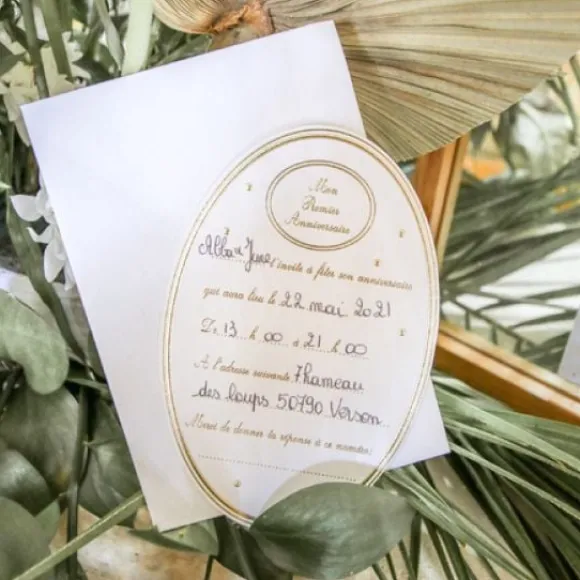 Mon
Premier
Anniversaire
Abba et June t'invite à fêter son anniversaire
qui aura lieu le 22 mai 2021
De 13 h 00 à 21 h 00
A l'adresse suivante 7 hameau
des loups 50790 Verson
Merci de donner ta réponse à ce numéro: